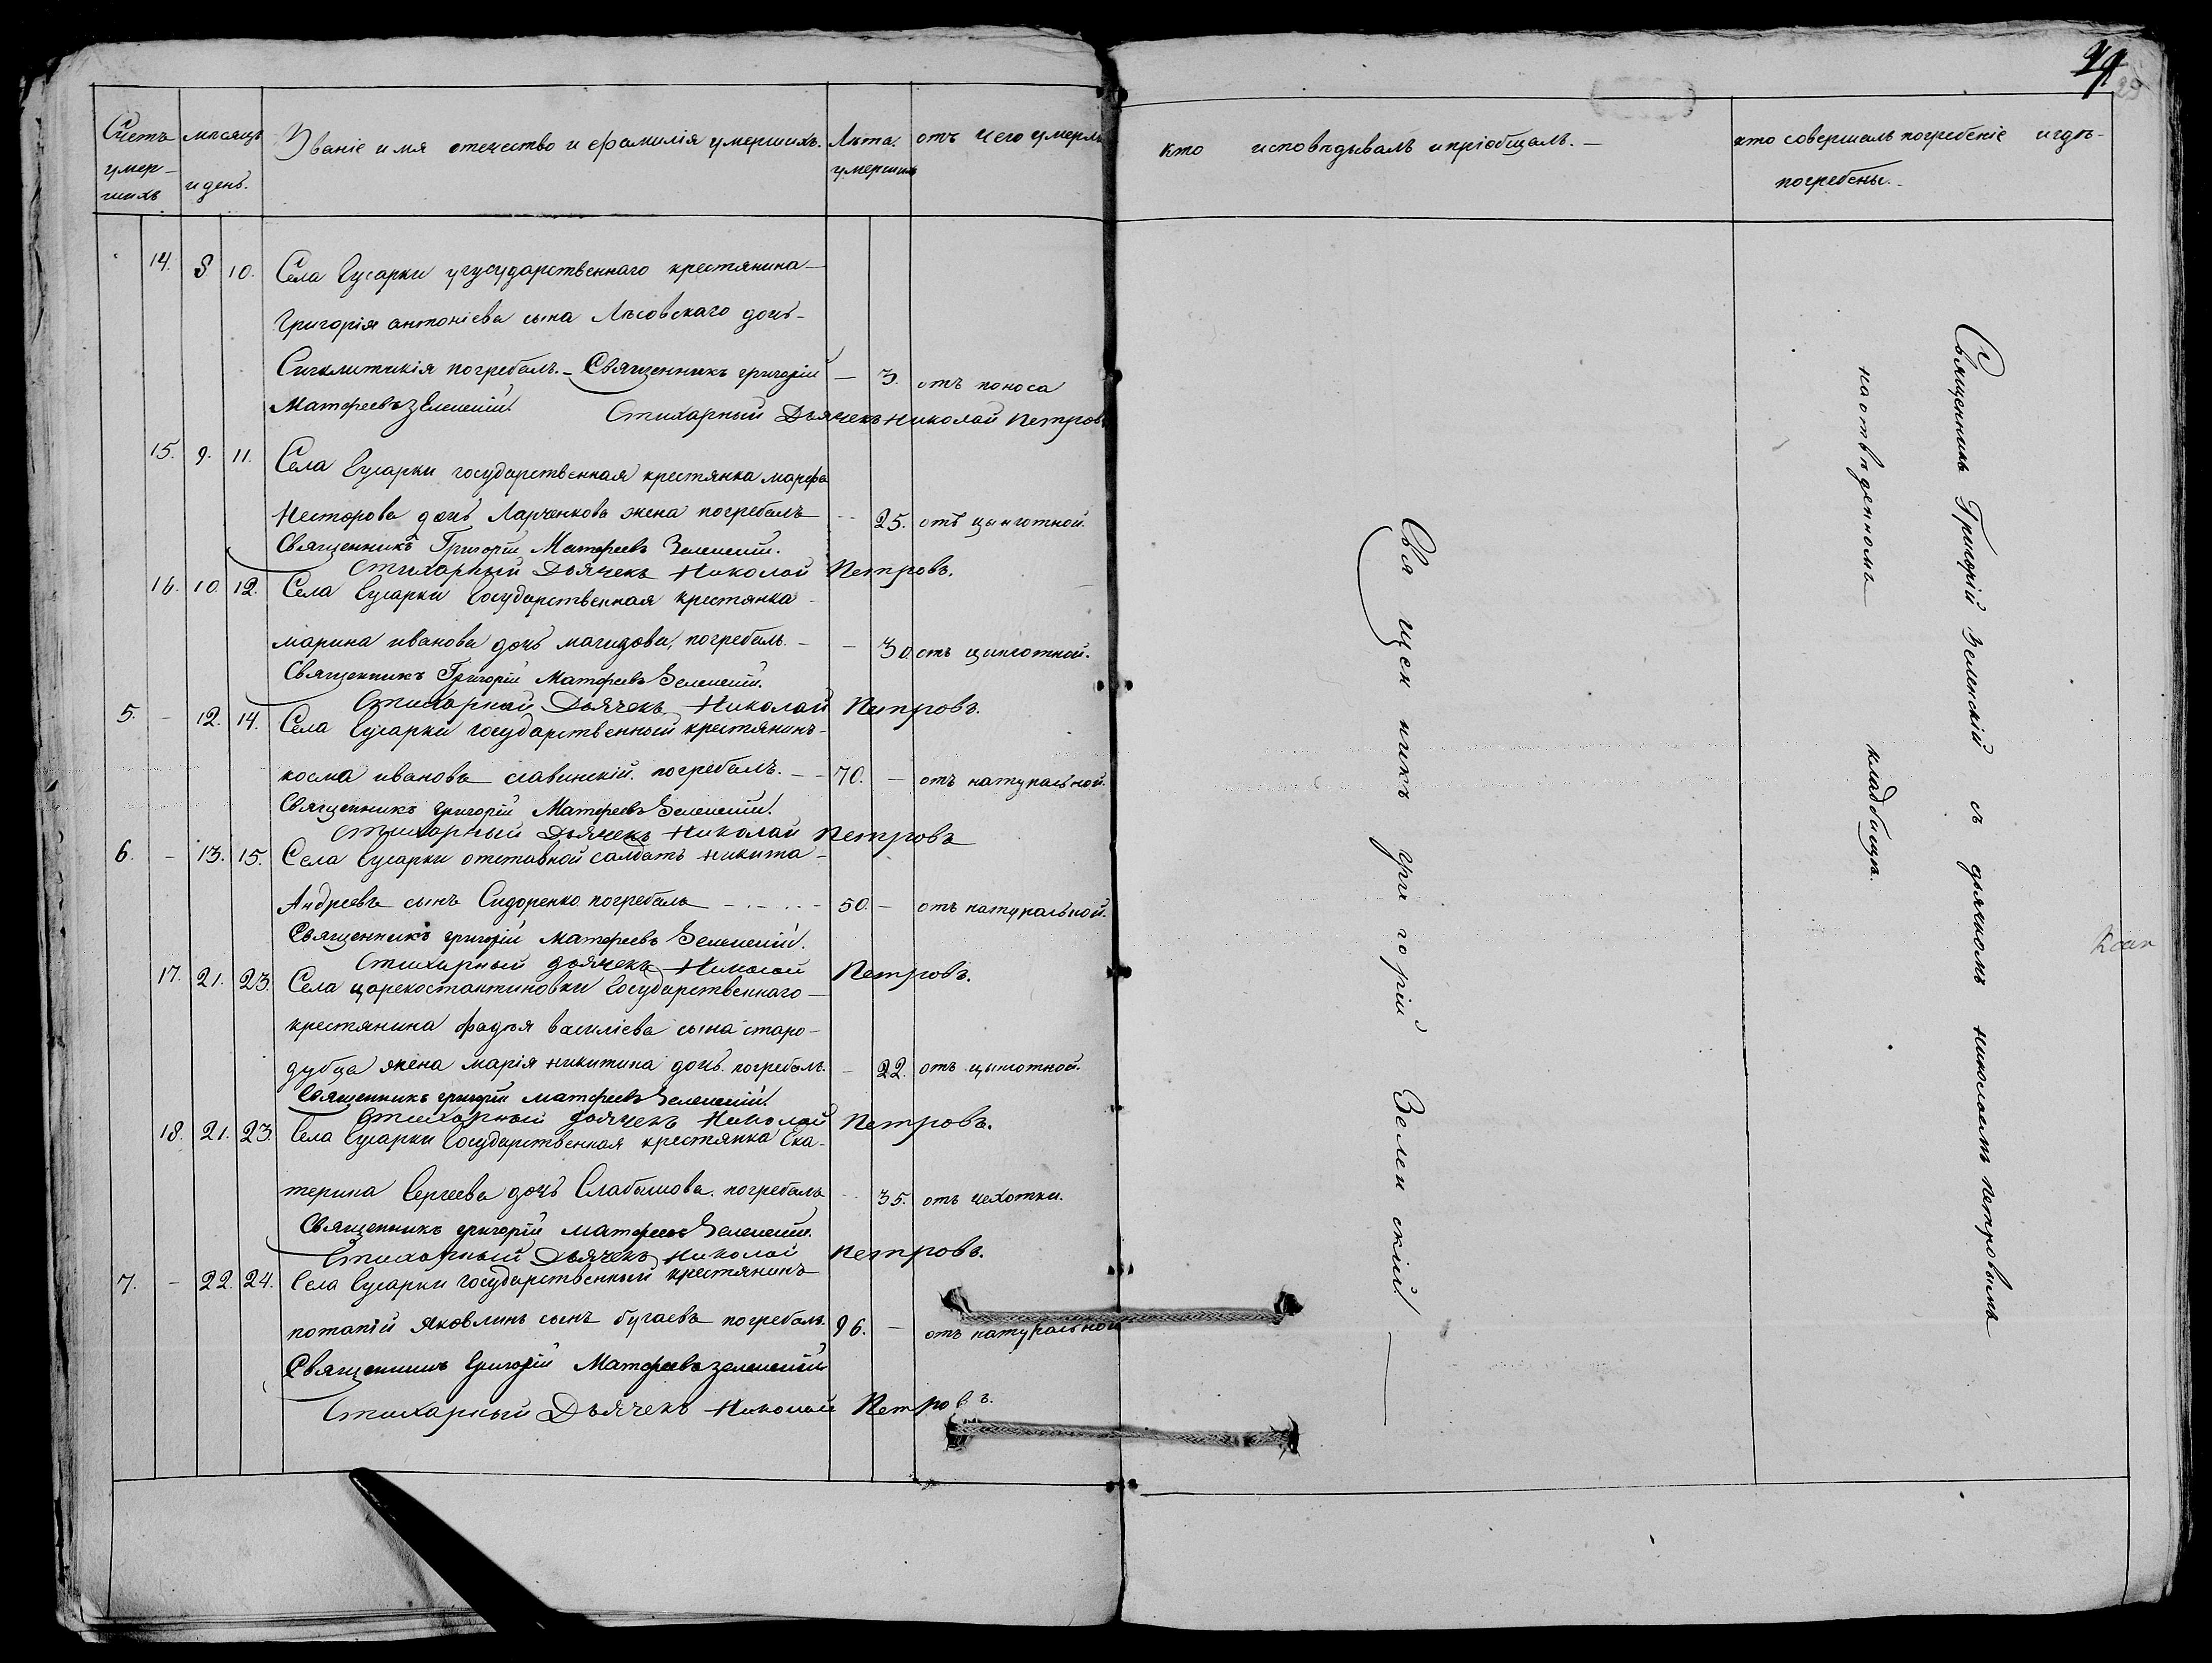 29
Счетъ умер-
шихъ
мѣсяцъ
и день.
Званіе имя отечество и фамилія умершихъ.
Лѣта
умершихъ
отъ чего умерли
кто исповѣдывалъ и пріобщалъ. —
кто совершалъ погребеніе и гдѣ-
погребены.
14. 8 10. Села Гусарки угусударственнаго крестянина —
Григорія антоніева сына Лисовскаго дочь —
Сигклитикія погребалъ. — Священникъ григорій — 3. отъ поноса
Матфеевъ зеленскій. Стихарный Дьячекъ Николай Петровъ
15. 9. 11. Села Гусарки государственная крестянка марфа
Несторова дочь Ларченкова жена погребалъ — 25. отъ цынготной.
Священникъ Григорій Матфеевъ Зеленскій.
Стихарный Дьячекъ Николай Петровъ.
16. 10 12. Села Гусарки Государственная крестянка
марина иванова дочь погребалъ. — — 30 отъ цинготной.
Священникъ Григорій Матфеевъ Зеленскій.
Стихарный Дьячекъ Николай Петровъ.
5. — 12. 14. Села Гусарки государственный крестянинъ —
косма ивановъ славинскій. погребалъ. — — 70. — отъ натуральной.
Священникъ григорій Матфеевъ Зеленскій.
Стихарный Дьячекъ Николай Петровъ
6. — 13. 15. Села Гусарки отставной салдатъ никита —
Андреевъ сынъ Сидоренко погребалъ — . — . . — 50. — отъ натуральной.
Священникъ григорій матфеевъ Зеленскій.
Стихарный дьячекъ Николай Петровъ.
17. 21. 23. Села царекостантиновки Государственнаго —
крестянина фадѣя василіева сына старо —
дубца жена марія никитина дочь. погребалъ. — 22. отъ цынготной.
Священникъ григорій матфеевъ Зеленскій.
Стихарный дьячекъ Николай Петровъ.
18. 21. 23. Села Гусарки Государственная крестянка Ека-
терина Сергеева дочь погребалъ — 35. отъ чехотки.
Священникъ григорій матфеевъ Зеленскій.
Стихарный Дьячекъ Николай Петровъ.
7. — 22. 24. Села Гусарки государственный крестянинъ
потапій Яковлинъ сынъ бугаевъ погребалъ. 96. — отъ натуральной
Священникъ Григорій Матфеевъ зеленскій
Стихарный Дьячекъ Николай Петровъ.
Священникъ григорій Зеленскій
Священникъ Григорій Зеленскій съ дьячкомъ николаемъ петровымъ
на отвѣденномъ кладбищѣ.